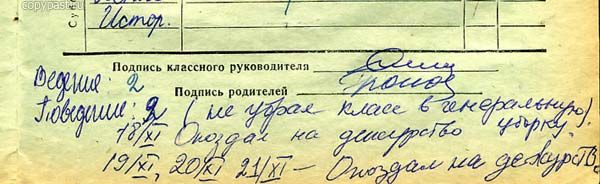 copypast.ru
Истор.
Подпись классного руководителя
Ведение: 2
Подпись родителей
Поведение: 2 (не убрал класс в генеральную
уборку).
18/XI Опоздал на дежурство
19/XI, 20/XI 21/XI — Опоздал на дежурств